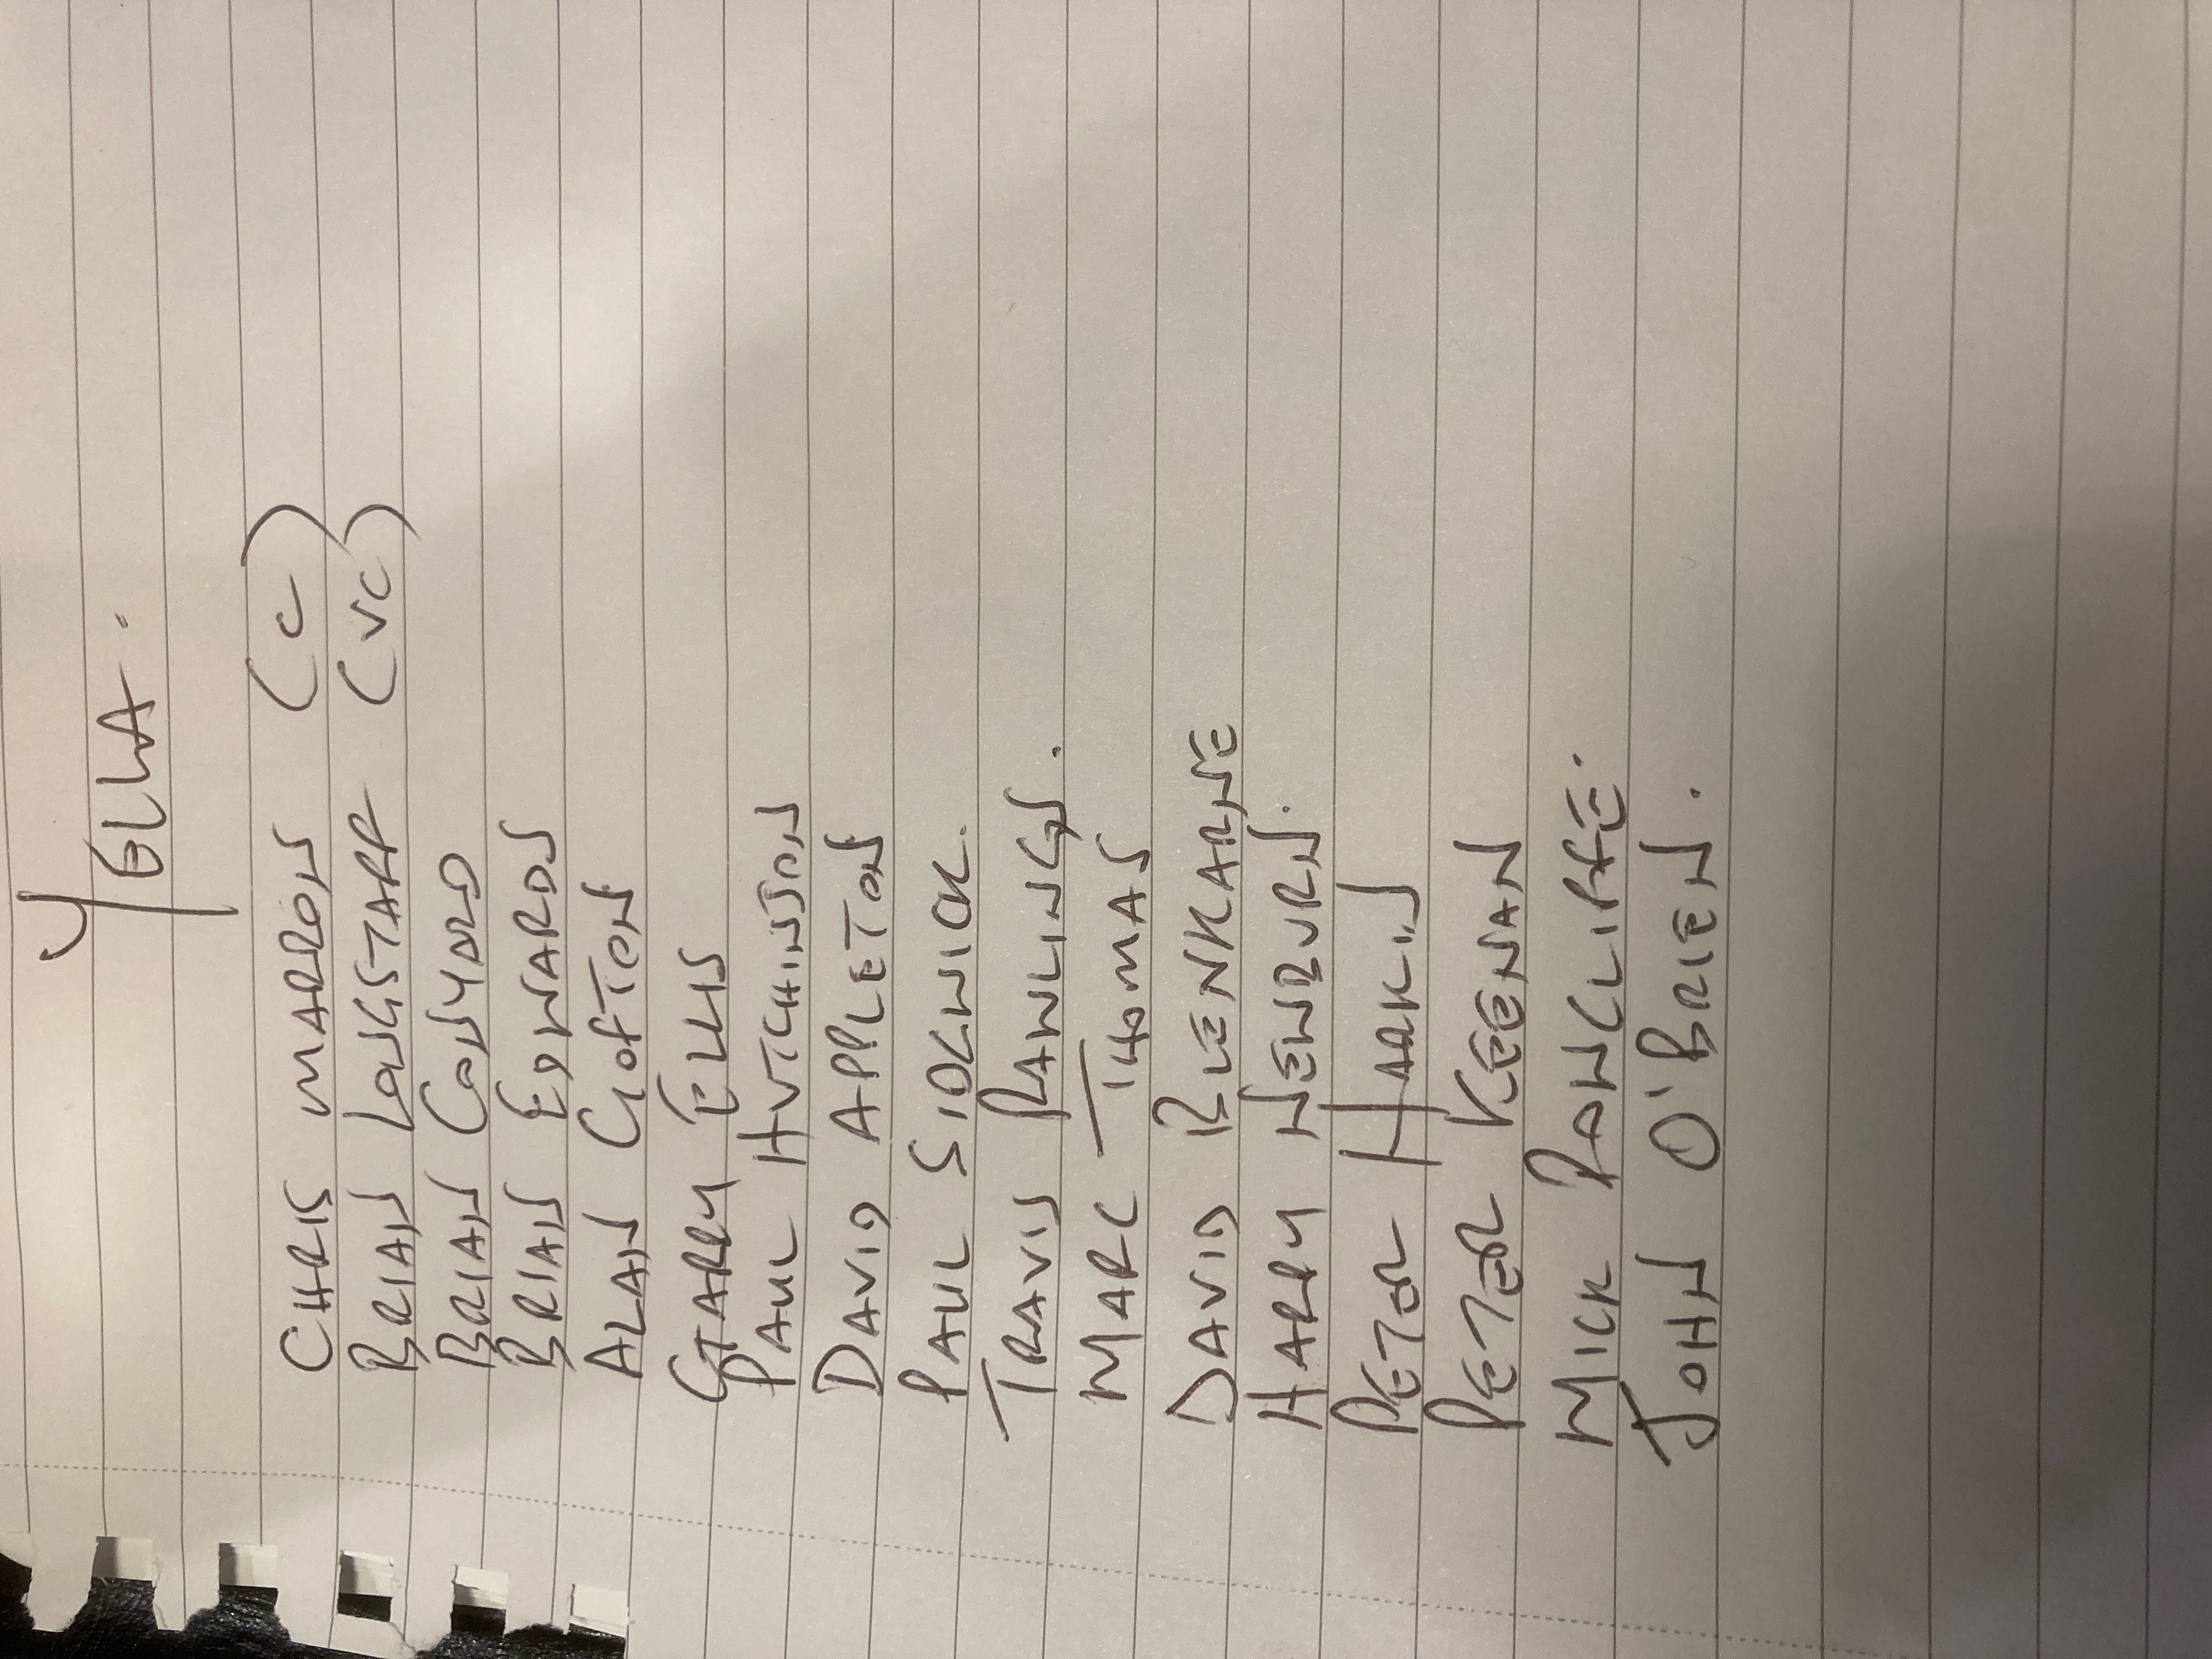 YGLLA.
CHRIS MARRON (C)
BRIAN LONGSTAFF (VC)
BRIAN CONYARD
BRIAN EDWARDS
ALAN CLOFTON
GARRY ELLIS
PAUL HUTCHINSON
DAVID APPLETON
PAUL SIDGWICK.
TRAVIS RAWLINGS.
MARC THOMAS
DAVID BLENKARNE
HARRY NEWBURN.
PETER HARKIN
PETER KEENAN
MICK RAWCLIFFE.
JOHN O'BRIEN.